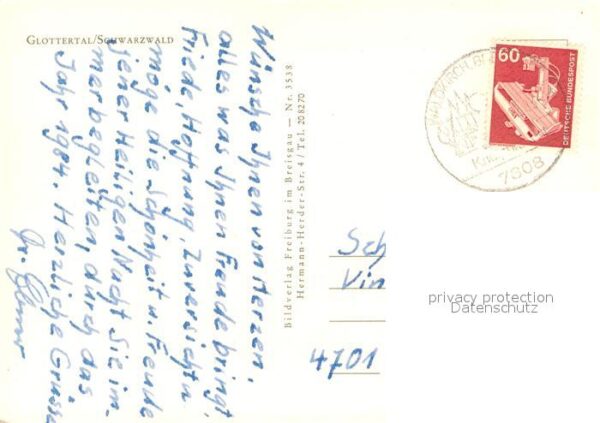 GLOTTERTAL/SCHWARZWALD
Wünsche Ihnen von Herzen,
alles was Ihnen Freude bringt,
Friede, Hoffnung, Zuversicht u.
möge die Schönheit u. Freude
jener Heiligen Nacht Sie im-
mer begleiten, durch das
Jahr 1984. Herzliche Grüsse
Bildverlag Freiburg im Breisgau — Nr. 3538
Hermann-Herder-Str. 4 / Tel. 208270
60
DEUTSCHE BUNDESPOST
7808
Sch
Vin
4701
privacy protection
Datenschutz